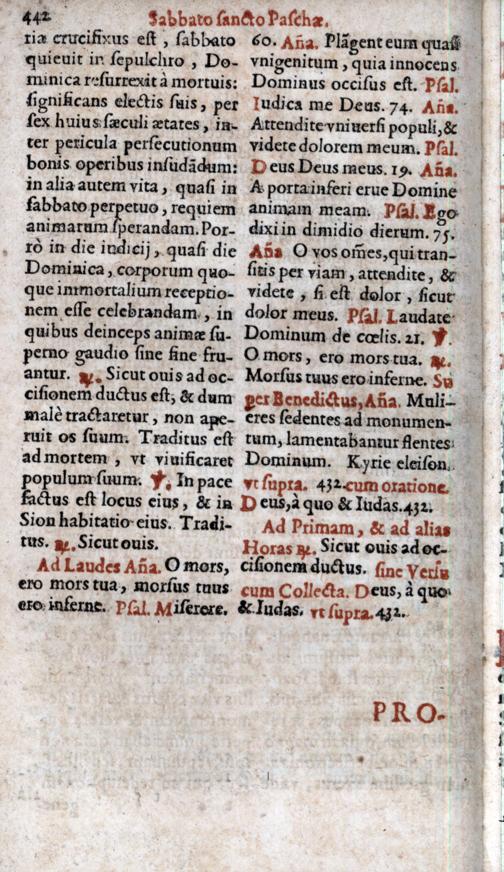 442 Sabbato sancto Paschæ.
riæ crucifixus est, sabbato
quieuit in sepulchro, Do-
minica resurrexit à mortuis:
significans electis suis, per
sex huius sæculi ætates, in-
ter pericula persecutionum
bonis operibus insudādum:
in alia autem vita, quasi in
sabbato perpetuo, requiem
animarum sperandam. Por-
rò in die iudicij, quasi die
Dominica, corporum quo-
que immortalium receptio-
nem esse celebrandam, in
quibus deinceps animæ su-
perno gaudio sine fine fru-
antur. ℟. Sicut ouis ad oc-
cisionem ductus est, & dum
malè tractaretur, non ape-
ruit os suum. Traditus est
ad mortem, vt viuificaret
populum suum. ℣. In pace
factus est locus eius, & in
Sion habitatio eius. Tradi-
tus. ℟. Sicut ouis.
Ad Laudes Aña. O mors,
ero mors tua, morsus tuus
ero inferne. Psal. Miserere.
60. Aña. Plāgent eum quasi
vnigenitum, quia innocens
Dominus occisus est. Psal.
Iudica me Deus. 74. Aña.
Attendite vniuersi populi, &
videte dolorem meum. Psal.
Deus Deus meus. 19. Aña.
A porta inferi erue Domine
animam meam. Psal. Ego
dixi in dimidio dierum. 75.
Aña O vos om̃es, qui tran-
sitis per viam, attendite, &
videte, si est dolor, sicut
dolor meus. Psal. Laudate
Dominum de cœlis. 21. ℣.
O mors, ero mors tua. ℟.
Morsus tuus ero inferne. Su
per Benedictus, Aña. Muli-
eres sedentes ad monumen-
tum, lamentabantur flentes
Dominum. Kyrie eleison.
vt supra. 432. cum oratione.
Deus, à quo & Iudas. 432.
Ad Primam, & ad alias
Horas ℟. Sicut ouis ad oc-
cisionem ductus. sine Versu
cum Collecta. Deus, à quo
& Iudas. vt supra. 432.
PRO-